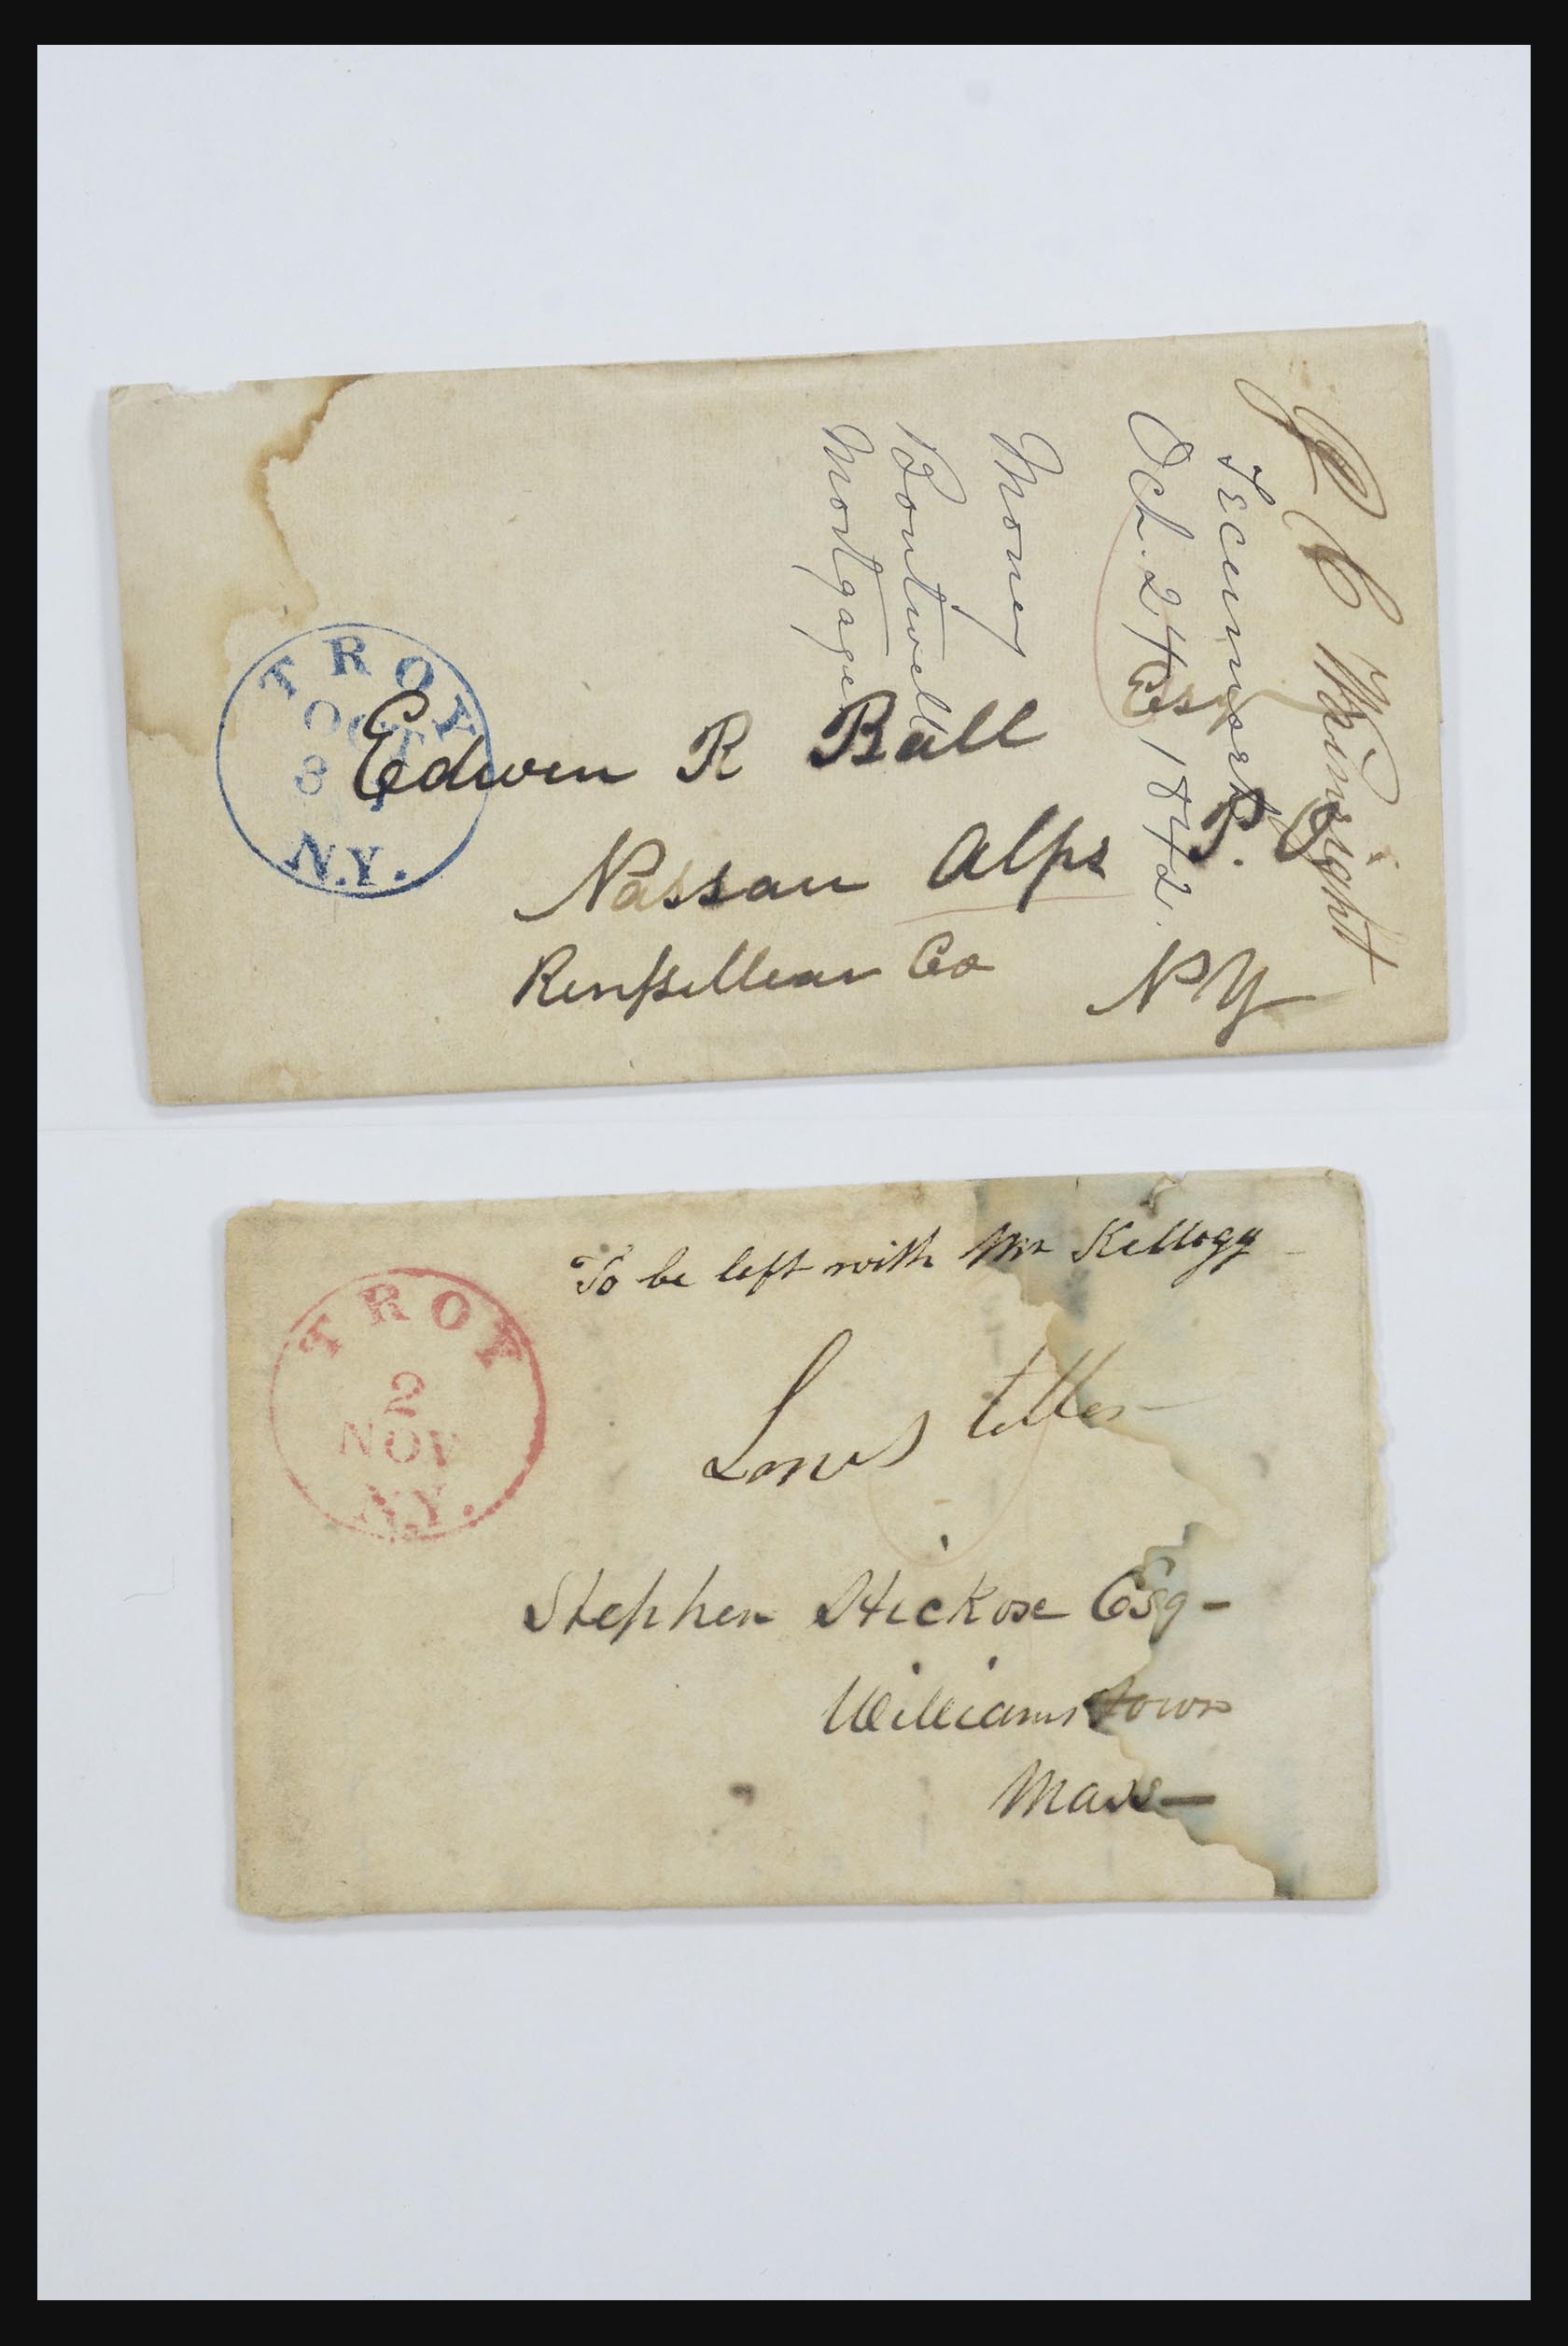 TROY
OCT
N.Y.
Edwin R Ball Esq
Nassau Alps P. O
Renſsellear Co
N Y
Wainright
Oct. 24 1842.
Money
Boutwell
Mortgage
To be left with Mr Kellogg
TROY
2
NOV
N.Y.
Stephen Hickox Esq-
Williamstown
Mass-